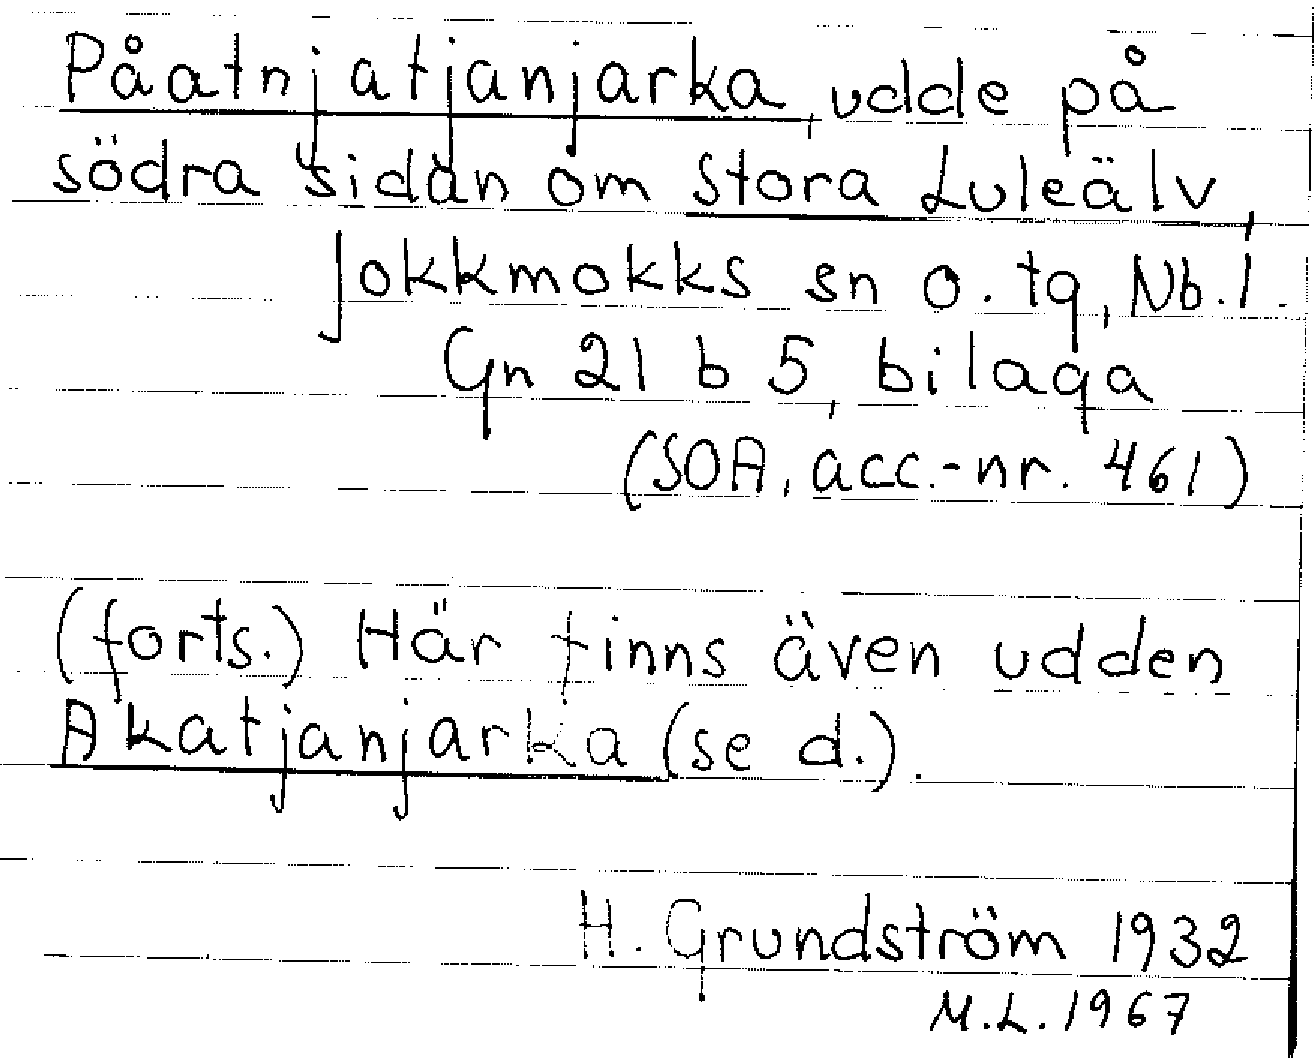 Påatnjatjanjarka, udde på
södra sidan om Stora Luleälv,
Jokkmokks sn o. tg, Nb. l.
Gn 21 b 5, bilaga
(SOA, acc.-nr. 461)
(forts.) Här finns även udden
Akatjanjarka (se d.).
H. Grundström 1932
M.L. 1967